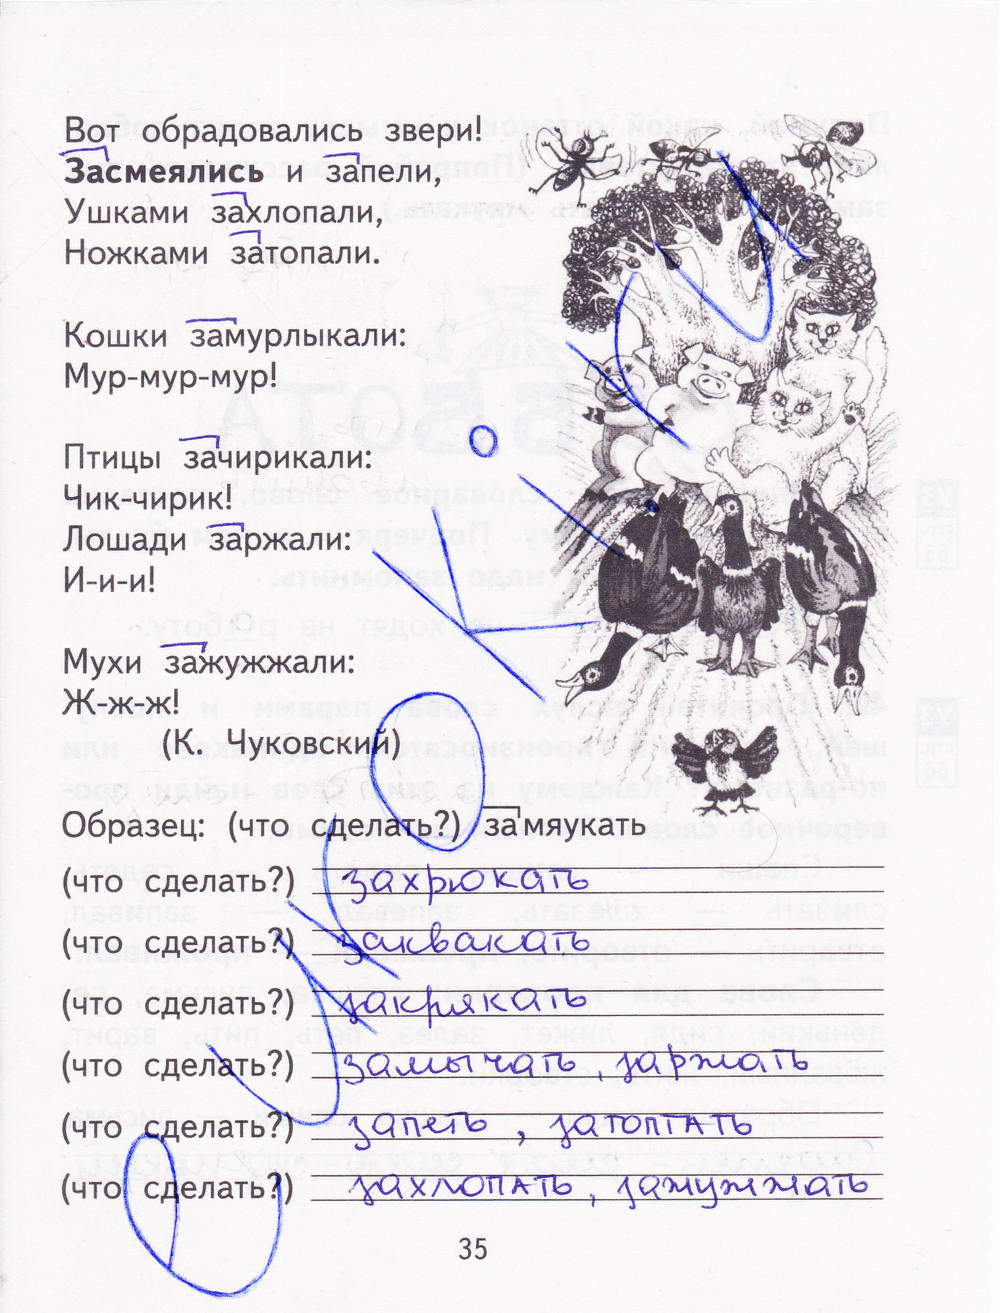 Вот обрадовались звери!
Засмеялись и запели,
Ушками захлопали,
Ножками затопали.
Кошки замурлыкали:
Мур-мур-мур!
Птицы зачирикали:
Чик-чирик!
Лошади заржали:
И-и-и!
Мухи зажужжали:
Ж-ж-ж!
(К. Чуковский)
Образец: (что сделать?) замяукать
(что сделать?) захрюкать
(что сделать?) заквакать
(что сделать?) закрякать
(что сделать?) замычать, заржать
(что сделать?) запеть, затоптать
(что сделать?) захлопать, зажужжать
35